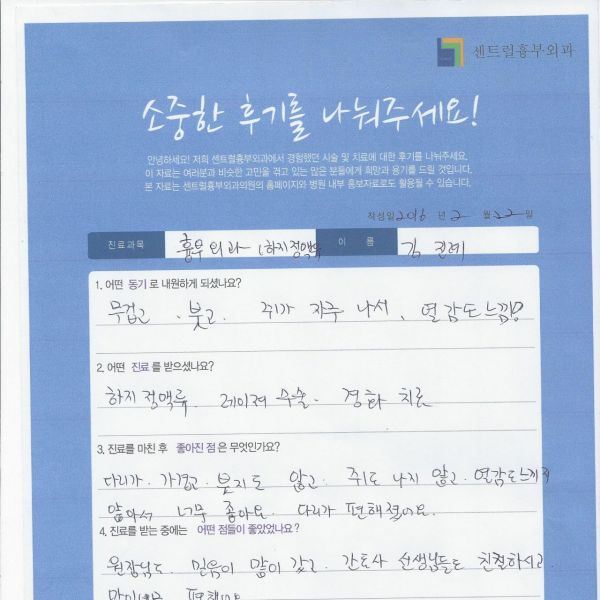 센트럴흉부외과
소중한 후기를 나눠주세요!
안녕하세요! 저희 센트럴흉부외과에서 경험했던 시술 및 치료에 대한 후기를 나눠주세요.
이 자료는 여러분과 비슷한 고민을 겪고 있는 많은 분들에게 희망과 용기를 드릴 것입니다.
본 자료는 센트럴흉부외과의원의 홈페이지와 병원 내부 홍보자료로도 활용될 수 있습니다.
작성일 2016 년 2 월 22 일
진료과목 흉부외과 (하지정맥류 이 름 김
1. 어떤 동기로 내원하게 되셨나요?
무겁고, 붓고, 쥐가 자주 나서, 열감도 느낌!
2. 어떤 진료를 받으셨나요?
하지정맥류, 레이져 수술, 경화 치료
3. 진료를 마친 후 좋아진 점은 무엇인가요?
다리가 가볍고, 붓지도 않고, 쥐도 나지 않고, 열감도 느끼지
않아서 너무 좋아요. 다리가 편해졌어요.
4. 진료를 받는 중에는 어떤 점들이 좋았었나요?
원장님도, 믿음이 많이 갔고, 간호사 선생님들도 친절하시고